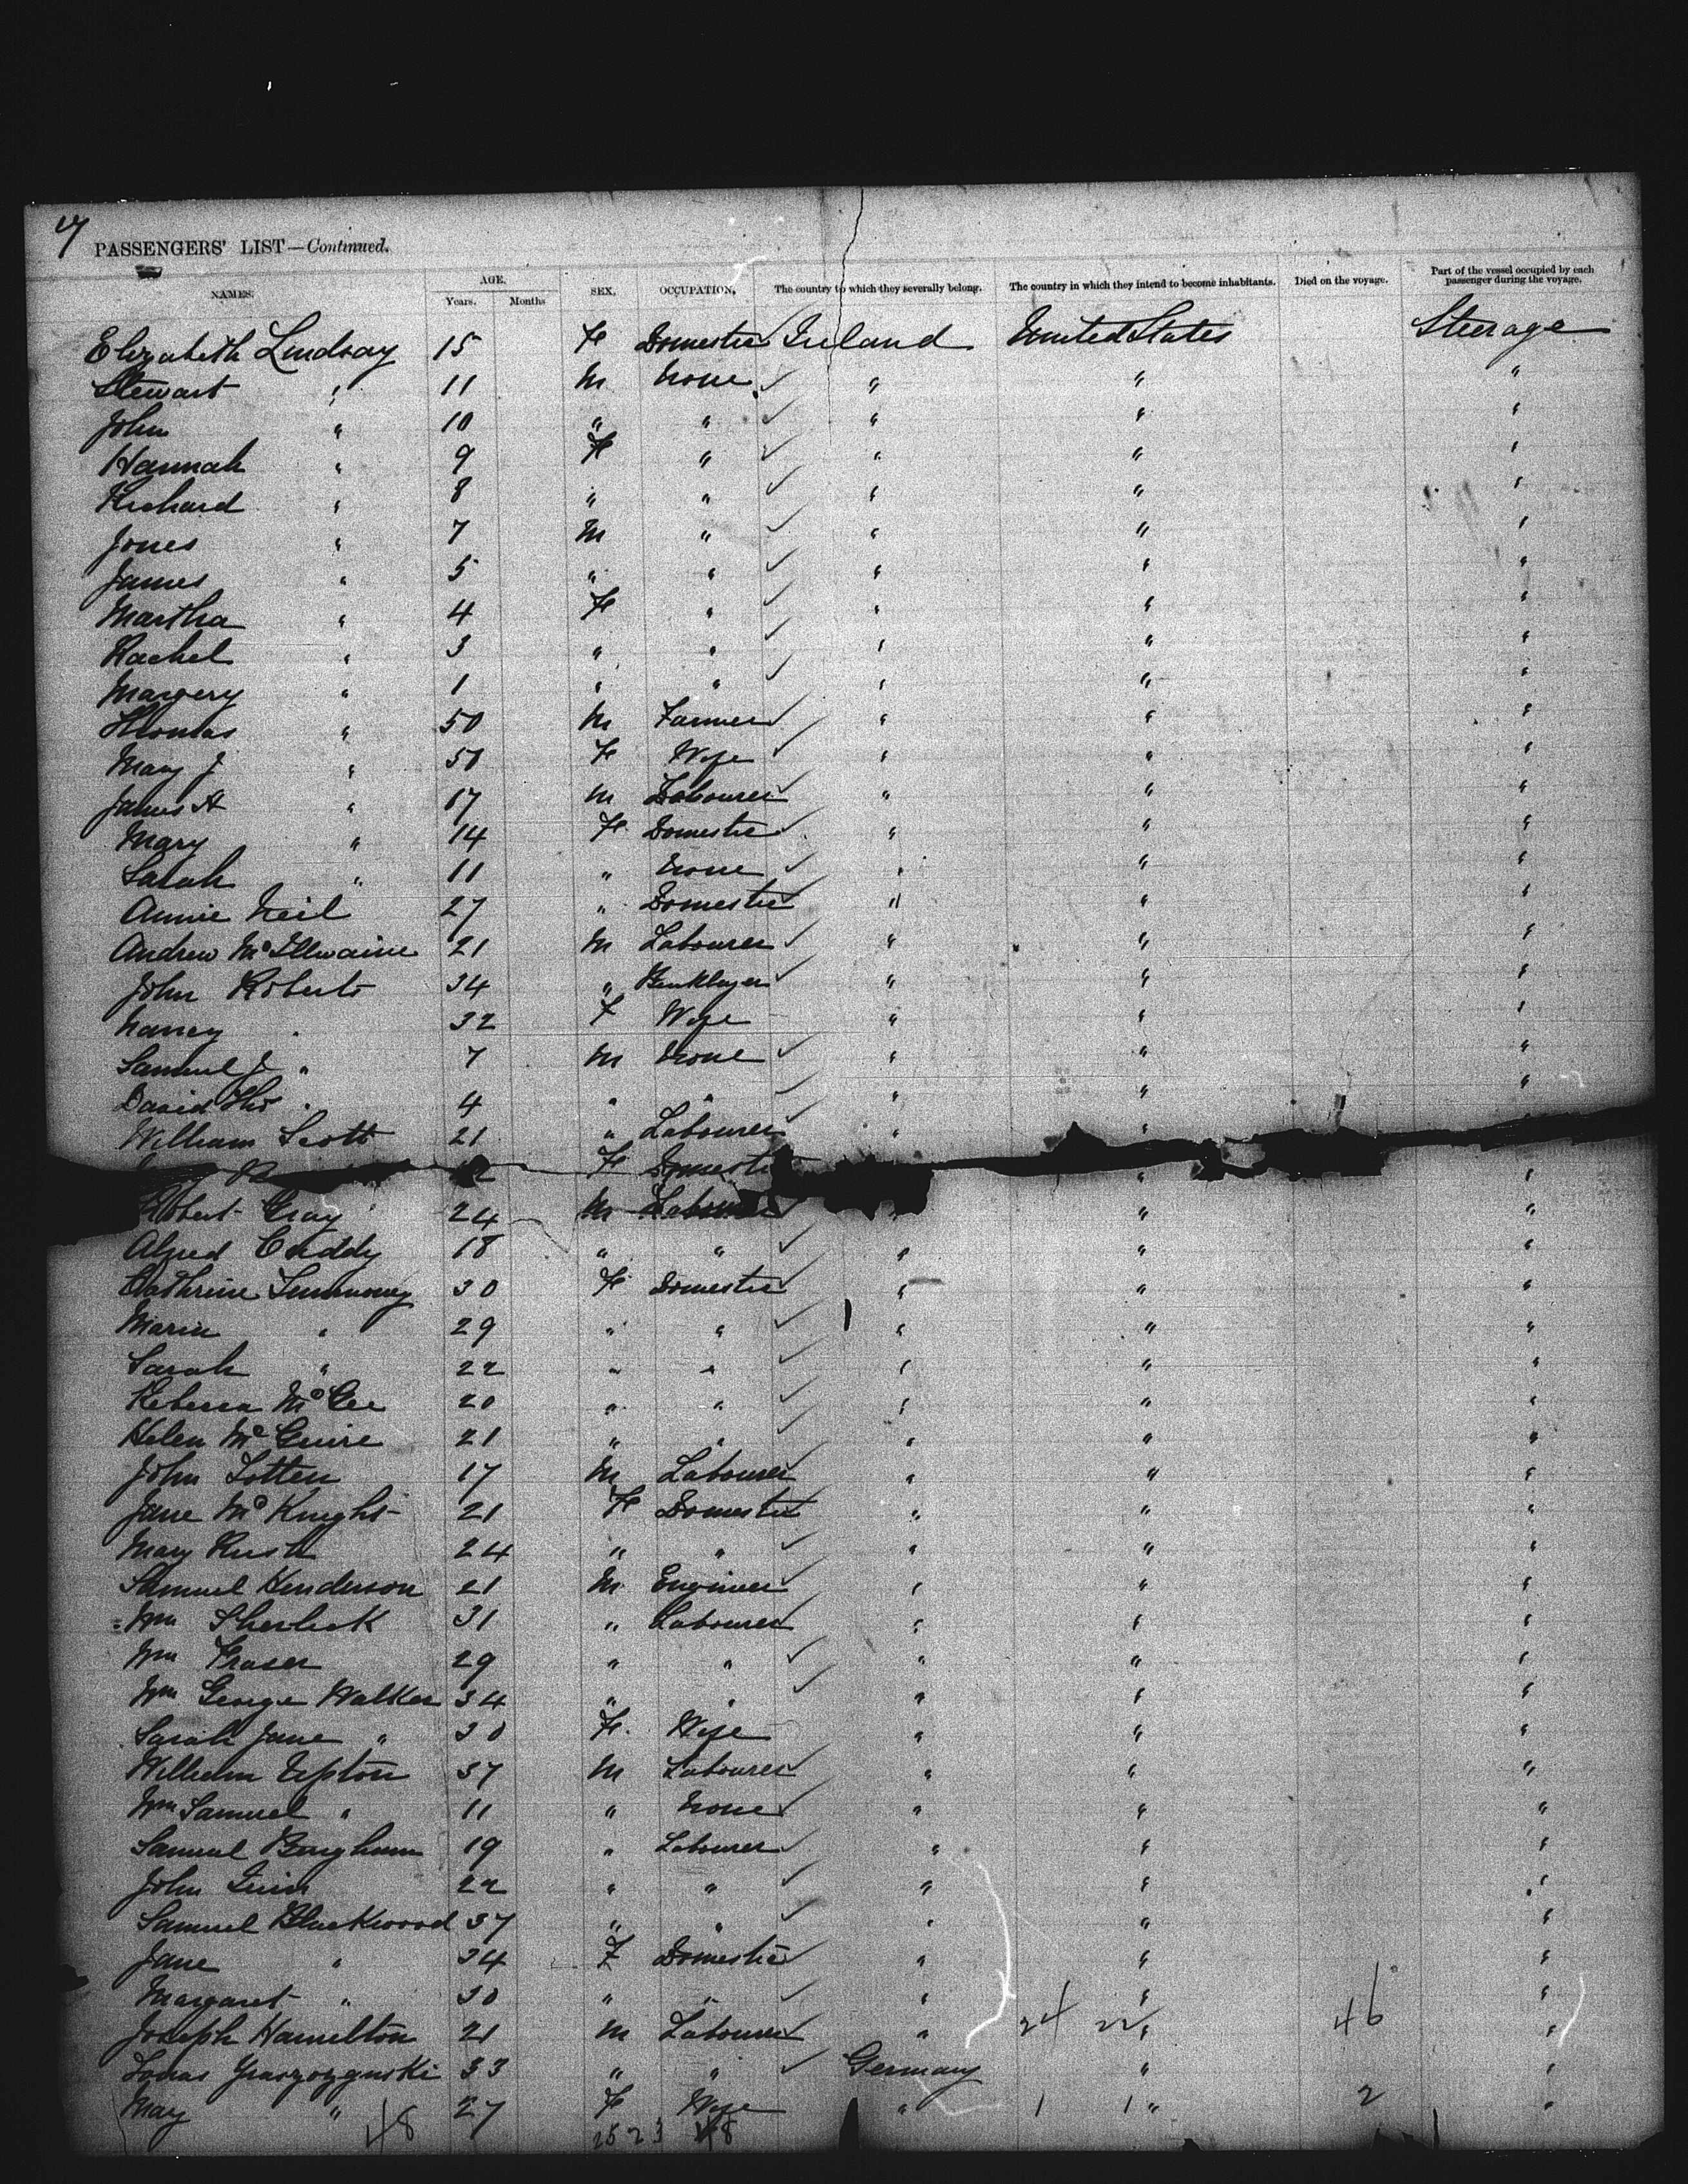 7
PASSENGERS' LIST—Continued.
NAMES. AGE. Years. Months SEX. OCCUPATION. The country to which they severally belong. The country in which they intend to become inhabitants. Died on the voyage. Part of the vessel occupied by each passenger during the voyage.
Elizabeth Lindsay 15 F Domestic Ireland United States Steerage
Stewart " 11 M None " " "
John " 10 " " " " "
Hannah " 9 F " " " "
Richard " 8 " " " " "
Jones " 7 M " " " "
James " 5 " " " " "
Martha " 4 F " " " "
Rachel " 3 " " " " "
Margery " 1 " " " " "
Thomas " 50 M Farmer " " "
Mary J " 50 F Wife " " "
James A " 17 M Labourer " " "
Mary " 14 F Domestic " " "
Sarah " 11 " None " " "
Annie Neil 27 " Domestic " " "
Andrew McIllwaine 21 M Labourer " " "
John Roberts 34 " Bricklayer " " "
Nancy " 32 F Wife " " "
Samuel J " 7 M None " " "
David Thos " 4 " " " " "
William Scott 21 " Labourer " " "
F Domestic " "
Robert Gray 24 M Labourer " " "
Alfred Cuddy 18 " " " " "
Cathrine 30 F Domestic " " "
Maria " 29 " " " " "
Sarah " 22 " " " " "
Rebecca McGee 20 " " " " "
Helen McGuire 21 " " " " "
John Totten 17 M Labourer " " "
Jane McKnight 21 F Domestic " " "
Mary Rush 24 " " " " "
Samuel Henderson 21 M Engineer " " "
Wm Sherlock 31 " Labourer " " "
Wm Fraser 29 " " " " "
Wm George Walker 34 " " " " "
Sarah Jane " 30 F Wife " " "
William Upton 37 M Labourer " " "
Wm Samuel " 11 " None " " "
Samuel Bingham 19 " Labourer " " "
John Quinn 22 " " " " "
Samuel Blackwood 37 " " " " "
Jane " 34 F Domestic " " "
Margaret " 30 " " " " "
Joseph Hamilton 21 M Labourer " 24 22 " 46 "
33 " " Germany " "
May " 27 F Wife " 1 1 " 2 "
48 25 23 48